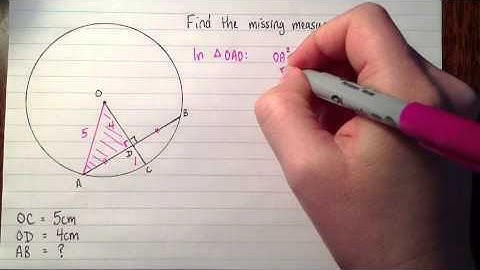 Find the missing
In △OAD: OA²
r
O
5
4
B
D
1
C
A
OC = 5cm
OD = 4cm
AB = ?